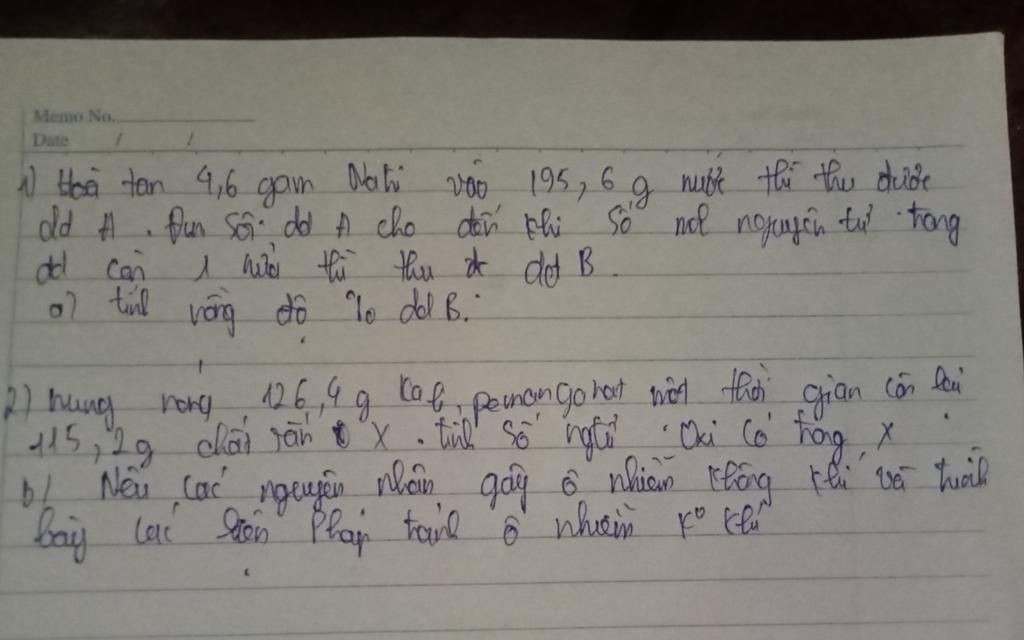 Memo No.
Date / /
1) Hoà tan 4,6 gam Natri vào 195,6 g nước thì thu được
dd A. Đun sôi dd A cho đến khi số mol nguyên tử trong
dd còn 1 nửa thì thu dd B.
a) tính nồng độ % dd B.
2) nung nóng 126,4 g Kali pemanganat một thời gian còn lại
115,2g chất rắn X. tính số ngtử Oxi có trong X
b/ Nêu các nguyên nhân gây ô nhiễm không khí và trình
bày các biện pháp tránh ô nhiễm k° khí